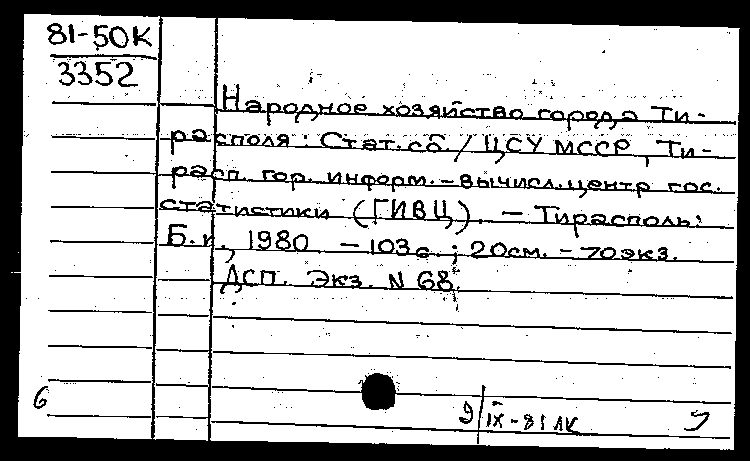 81-50К
3352
Народное хозяйство города Ти-
располя : Стат. сб. / ЦСУ МССР, Ти-
расп. гор. информ.-вычисл. центр гос.
статистики (ГИВЦ). — Тирасполь:
Б.и., 1980 — 103 с. ; 20 см. — 70 экз.
ДСП. Экз. N 68.
6
9/IX-81 ЛК